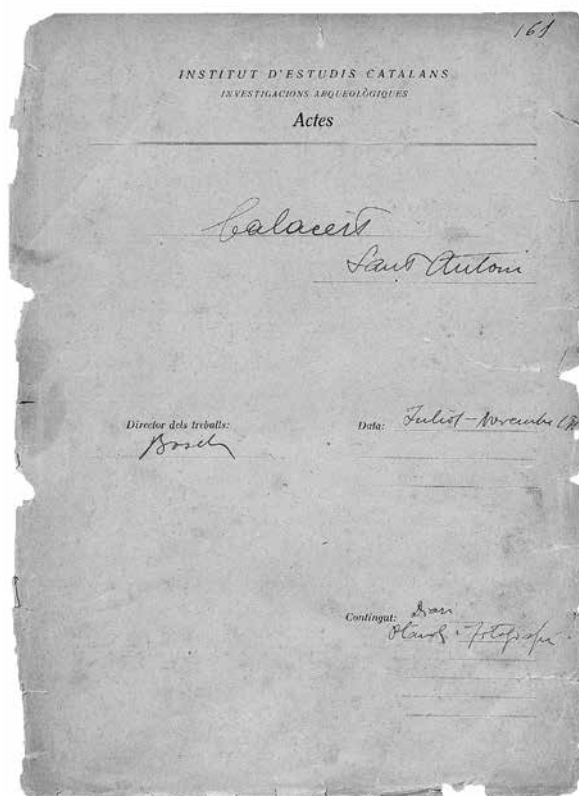 161
INSTITUT D'ESTUDIS CATALANS
INVESTIGACIONS ARQUEOLÒGIQUES
Actes
Calaceit
Sant Antoni
Director dels treballs:
Bosch
Data: Juliol - Novembre
Contingut: Diari
i fotografies